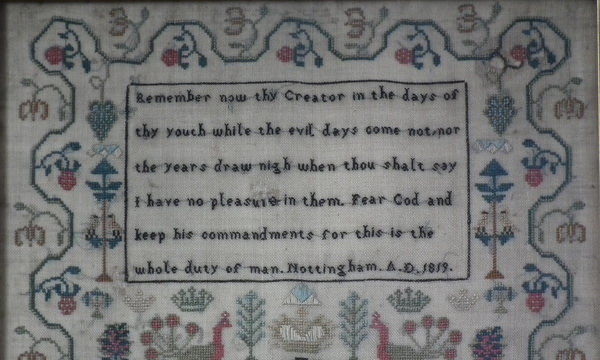 Remember now thy Creator in the days of
thy youth while the evil days come not, nor
the years draw nigh when thou shalt say
I have no pleasure in them. Fear God and
keep his commandments for this is the
whole duty of man. Nottingham. A.D. 1819.